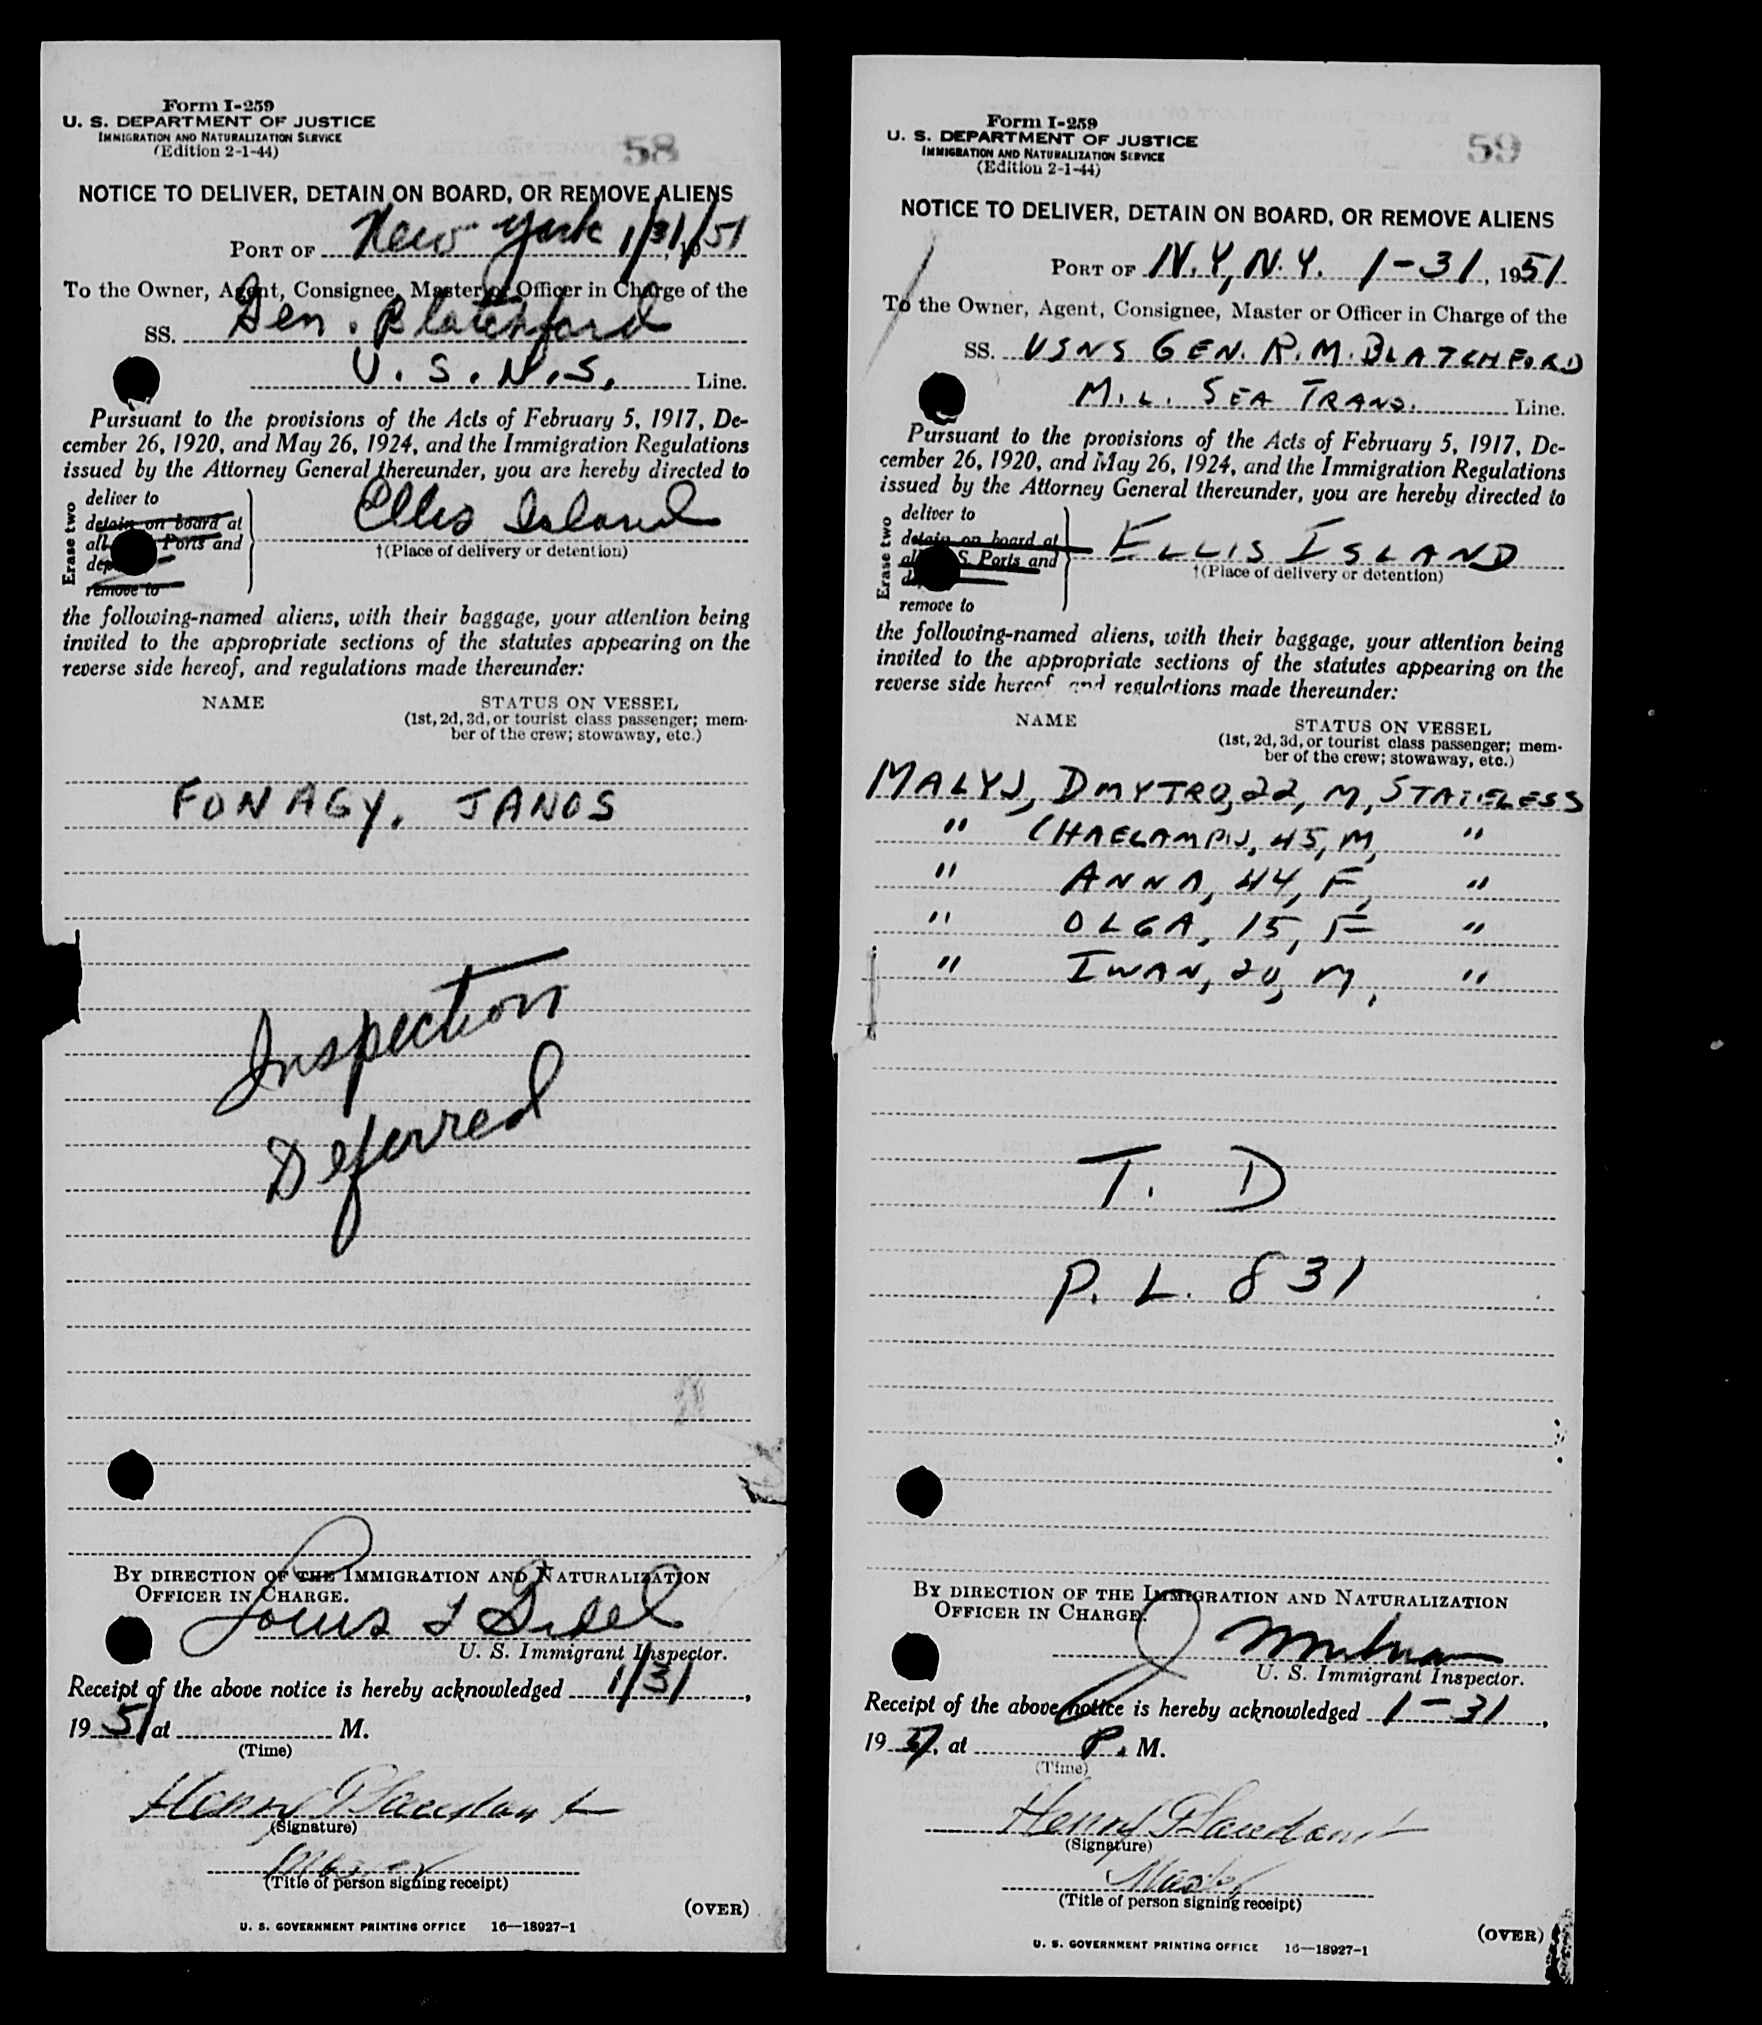 Form I-259
U. S. DEPARTMENT OF JUSTICE
IMMIGRATION AND NATURALIZATION SERVICE
(Edition 2-1-44)
58
NOTICE TO DELIVER, DETAIN ON BOARD, OR REMOVE ALIENS
PORT OF New York 1/31/51
To the Owner, Agent, Consignee, Master or Officer in Charge of the
SS. Gen. Blatchford
U.S.N.S. Line.
Pursuant to the provisions of the Acts of February 5, 1917, De-
cember 26, 1920, and May 26, 1924, and the Immigration Regulations
issued by the Attorney General thereunder, you are hereby directed to
Erase two
deliver to
detain on board at
all Ports and
remove to
Ellis Island
†(Place of delivery or detention)
the following-named aliens, with their baggage, your attention being
invited to the appropriate sections of the statutes appearing on the
reverse side hereof, and regulations made thereunder:
NAME STATUS ON VESSEL
(1st, 2d, 3d, or tourist class passenger; mem-
ber of the crew; stowaway, etc.)
FONAGY, JANOS
Inspection
Deferred
BY DIRECTION OF THE IMMIGRATION AND NATURALIZATION
OFFICER IN CHARGE.
U. S. Immigrant Inspector.
Receipt of the above notice is hereby acknowledged 1/31,
19 51 at M.
(Time)
Henry
(Signature)
(Title of person signing receipt)
(OVER)
U. S. GOVERNMENT PRINTING OFFICE 16—18927-1
Form I-259
U. S. DEPARTMENT OF JUSTICE
IMMIGRATION AND NATURALIZATION SERVICE
(Edition 2-1-44)
59
NOTICE TO DELIVER, DETAIN ON BOARD, OR REMOVE ALIENS
PORT OF N.Y, N.Y. 1-31, 1951
To the Owner, Agent, Consignee, Master or Officer in Charge of the
SS. USNS GEN. R.M. BLATCHFORD
MIL. SEA TRANS. Line.
Pursuant to the provisions of the Acts of February 5, 1917, De-
cember 26, 1920, and May 26, 1924, and the Immigration Regulations
issued by the Attorney General thereunder, you are hereby directed to
Erase two
deliver to
detain on board at
S. Ports and
remove to
ELLIS ISLAND
†(Place of delivery or detention)
the following-named aliens, with their baggage, your attention being
invited to the appropriate sections of the statutes appearing on the
reverse side hereof, and regulations made thereunder:
NAME STATUS ON VESSEL
(1st, 2d, 3d, or tourist class passenger; mem-
ber of the crew; stowaway, etc.)
MALYJ, DMYTRO, 22, M, STATELESS
" 45, M, "
" ANNA, 44, F, "
" OLGA, 15, F "
" IWAN, 20, M, "
T. D
P. L. 831
BY DIRECTION OF THE IMMIGRATION AND NATURALIZATION
OFFICER IN CHARGE.
U. S. Immigrant Inspector.
Receipt of the above notice is hereby acknowledged 1-31,
19 51, at P. M.
(Time)
Henry
(Signature)
Master
(Title of person signing receipt)
(OVER)
U. S. GOVERNMENT PRINTING OFFICE 16—18927-1